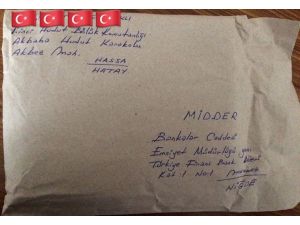 Hudut Bölük Komutanlığı
Akbaba Hudut Karakolu
Akbez
HASSA
HATAY
MİDDER
Bankalar Caddesi
Emniyet Müdürlüğü yanı
Türkiye Finans Bank
Kat: 1 No: 1
NİĞDE